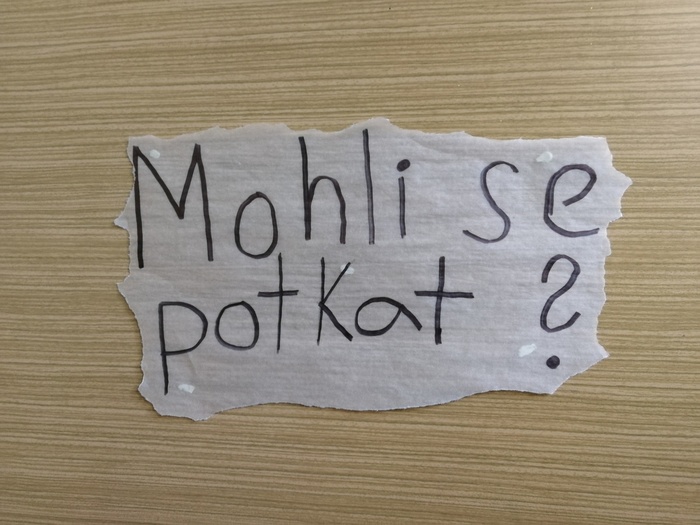 Mohli se
potkat ?